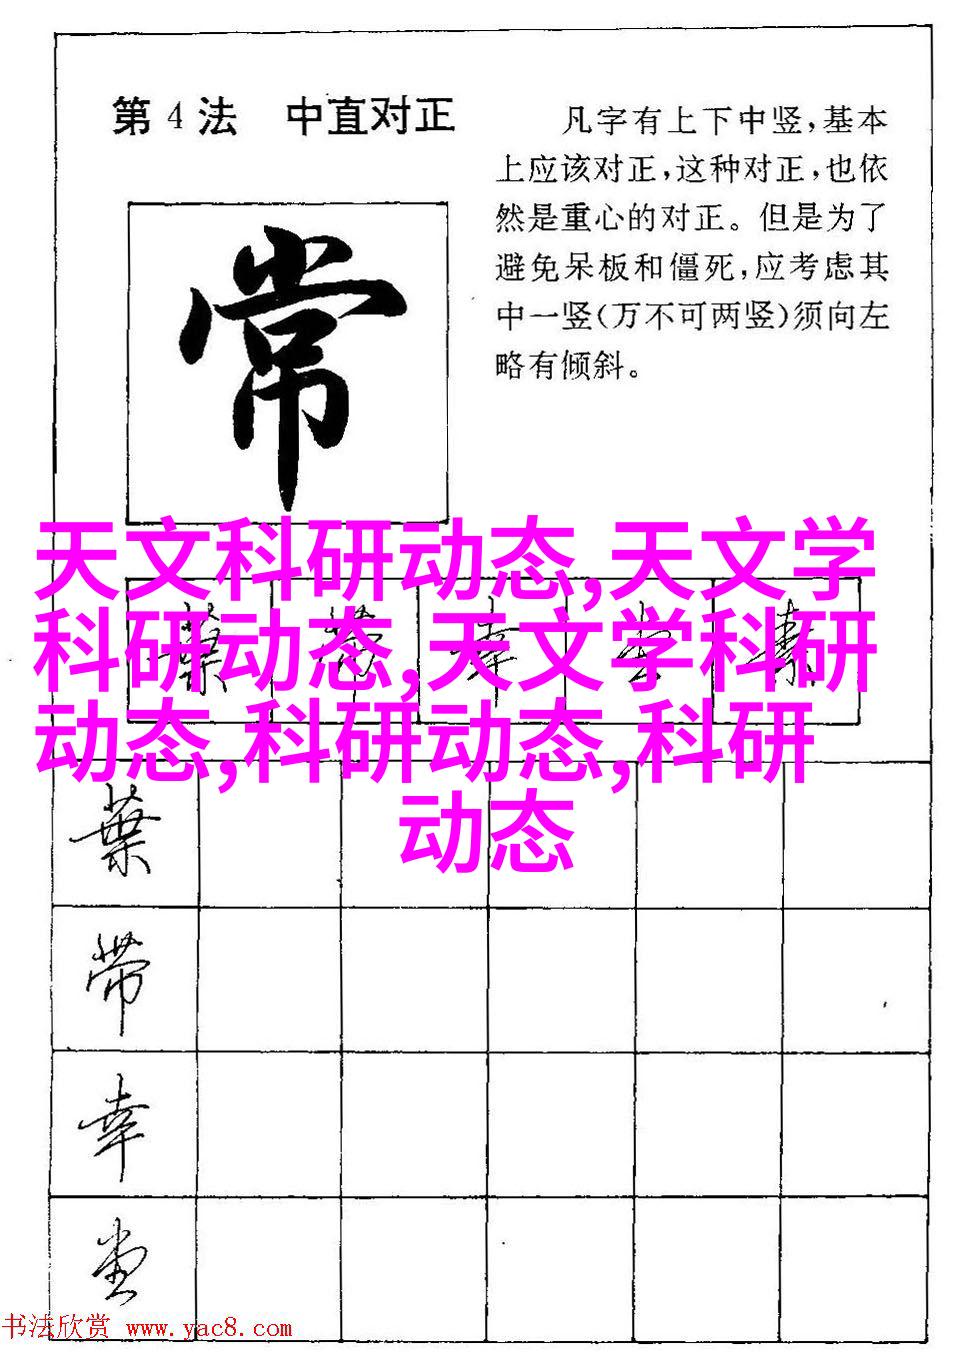 第4法 中直对正
凡字有上下中竖,基本
上应该对正,这种对正,也依
然是重心的对正。但是为了
避免呆板和僵死,应考虑其
中一竖(万不可两竖)须向左
略有倾斜。
常
天文科研动态,天文学
科研动态,天文学科研
动态,科研动态,科研
动态
葉 带 幸 堂 素
葉
带
幸
堂
书法欣赏 www.yac8.com